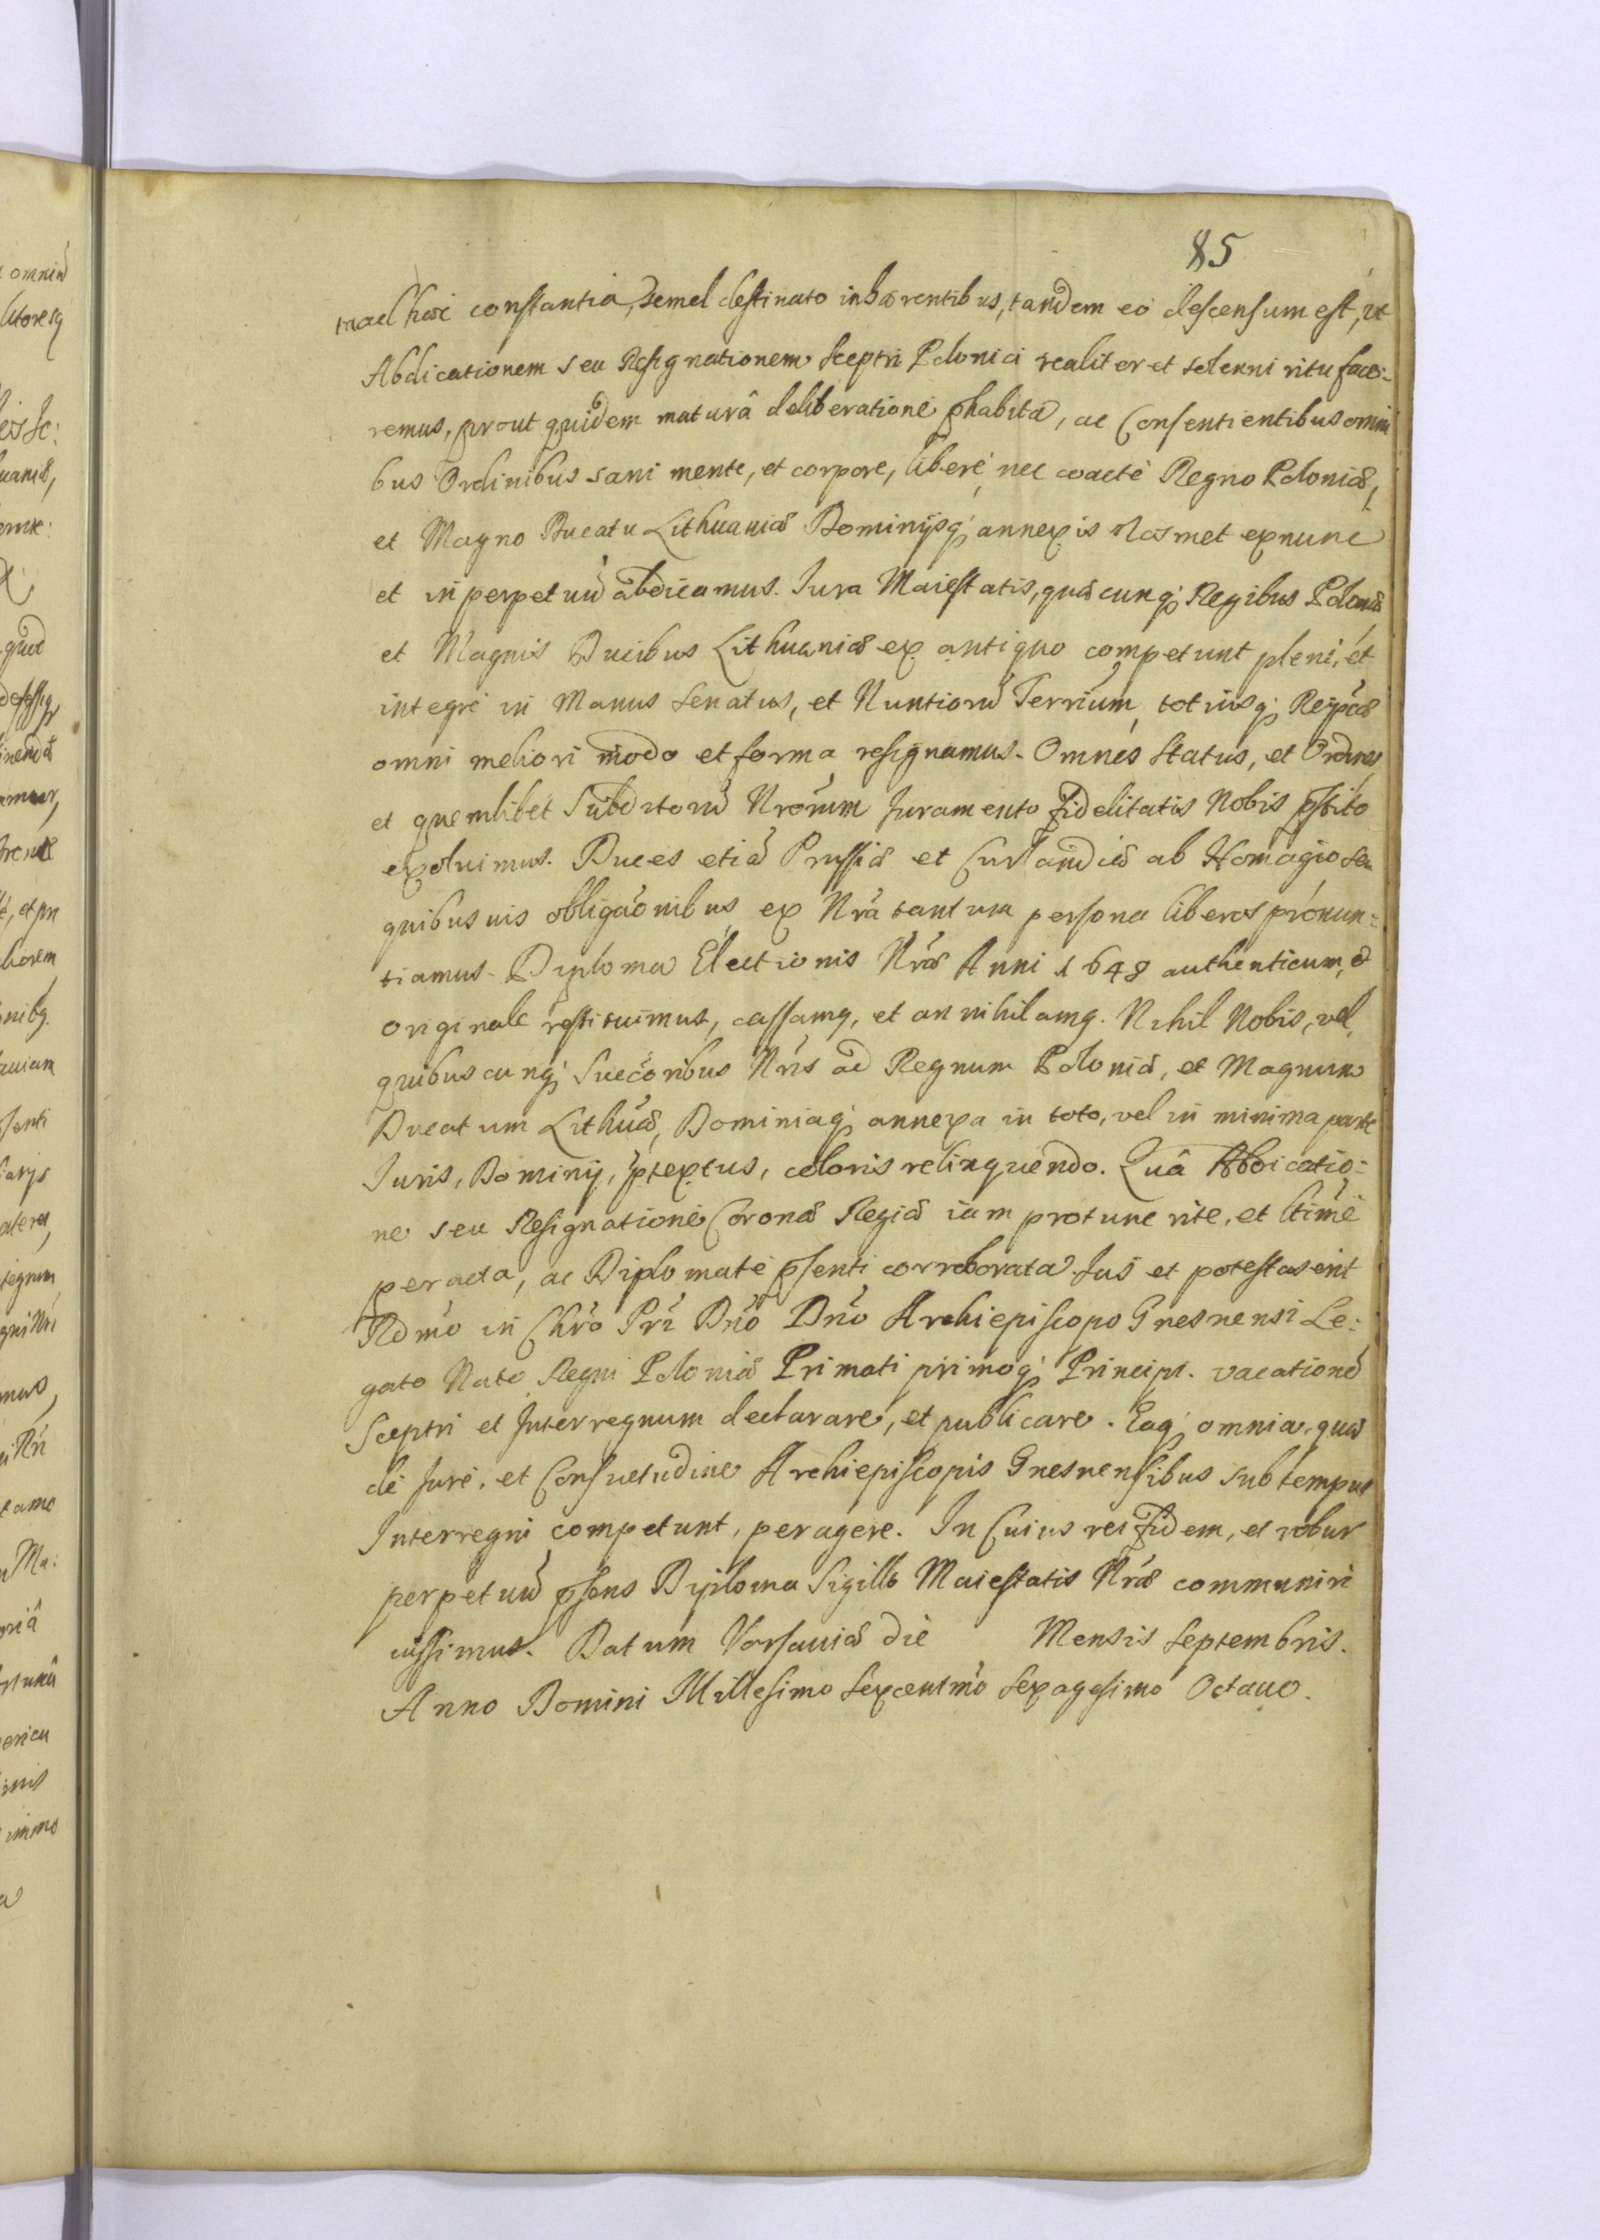 85
adhæc constantia, semel destinato inhærentibus, tandem eò descensum est, ut
Abdicationem seu Resignationem Sceptri Polonici realiter et solenni ritu face-
remus, prout quidem maturâ deliberatione phabita, ac Consentientibus omni
bus Ordinibus sani mente, et corpore, liberè, nec coactè Regno Poloniæ,
et Magno Ducatu Lithuaniæ Dominijsq; annexis Nosmet exnunc
et in perpetuũ abdicamus. Iura Maiestatis, quæcunq; Regibus Poloniæ
et Magnis Ducibus Lithuaniæ ex antiquo competunt plenè, et
integrè in Manus Senatus, et Nuntiorũ Terrium, totiusq; Reipcæ
omni meliori modo et forma resignamus. Omnes Status, et Ordines
et quemlibet Subditorũ Nrorum Juramento Fidelitatis Nobis pstito
exoluimus. Duces etiã Prussiæ et Curlandiæ ab Homagio seu
quibusuis obligaonibus ex Nrã tantum persona liberos pronun-
tiamus. Diploma Electionis Nræ Anni 1648 authenticum, &
originale restituimus, cassamq, et annihilamq. Nihil Nobis, vel
quibuscunq; Succoribus Nris ad Regnum Poloniæ, et Magnum
Ducatum Lithuæ, Dominiaq; annexa in toto, vel in minima parte
Iuris, Dominij, ptextus, coloris relinquendo. Quâ Abdicatio-
ne seu Resignatione Coronæ Regiæ iam protunc rite, et ltimè
peracta, ac Diplomate psenti corroborata Jus et potestas erit
Rdmo in Chro Pri Dno Dno Archiepiscopo Gnesnensi Le-
gato Nato Regni Poloniæ Primati primoq; Principi. vacationẽ
Sceptri et Interregnum declarare, et publicare. Eaq; omnia, quæ
de Jure, et Consuetudine Archiepiscopis Gnesnensibus sub tempus
Interregni competunt, peragere. In Cuius rei Fidem, et robur
perpetuũ psens Diploma Sigillo Maiestatis Nræ communiri
iussimus. Datum Varsauiæ die Mensis Septembris.
Anno Domini Millesimo Sexcentmo Sexagesimo Octauo.